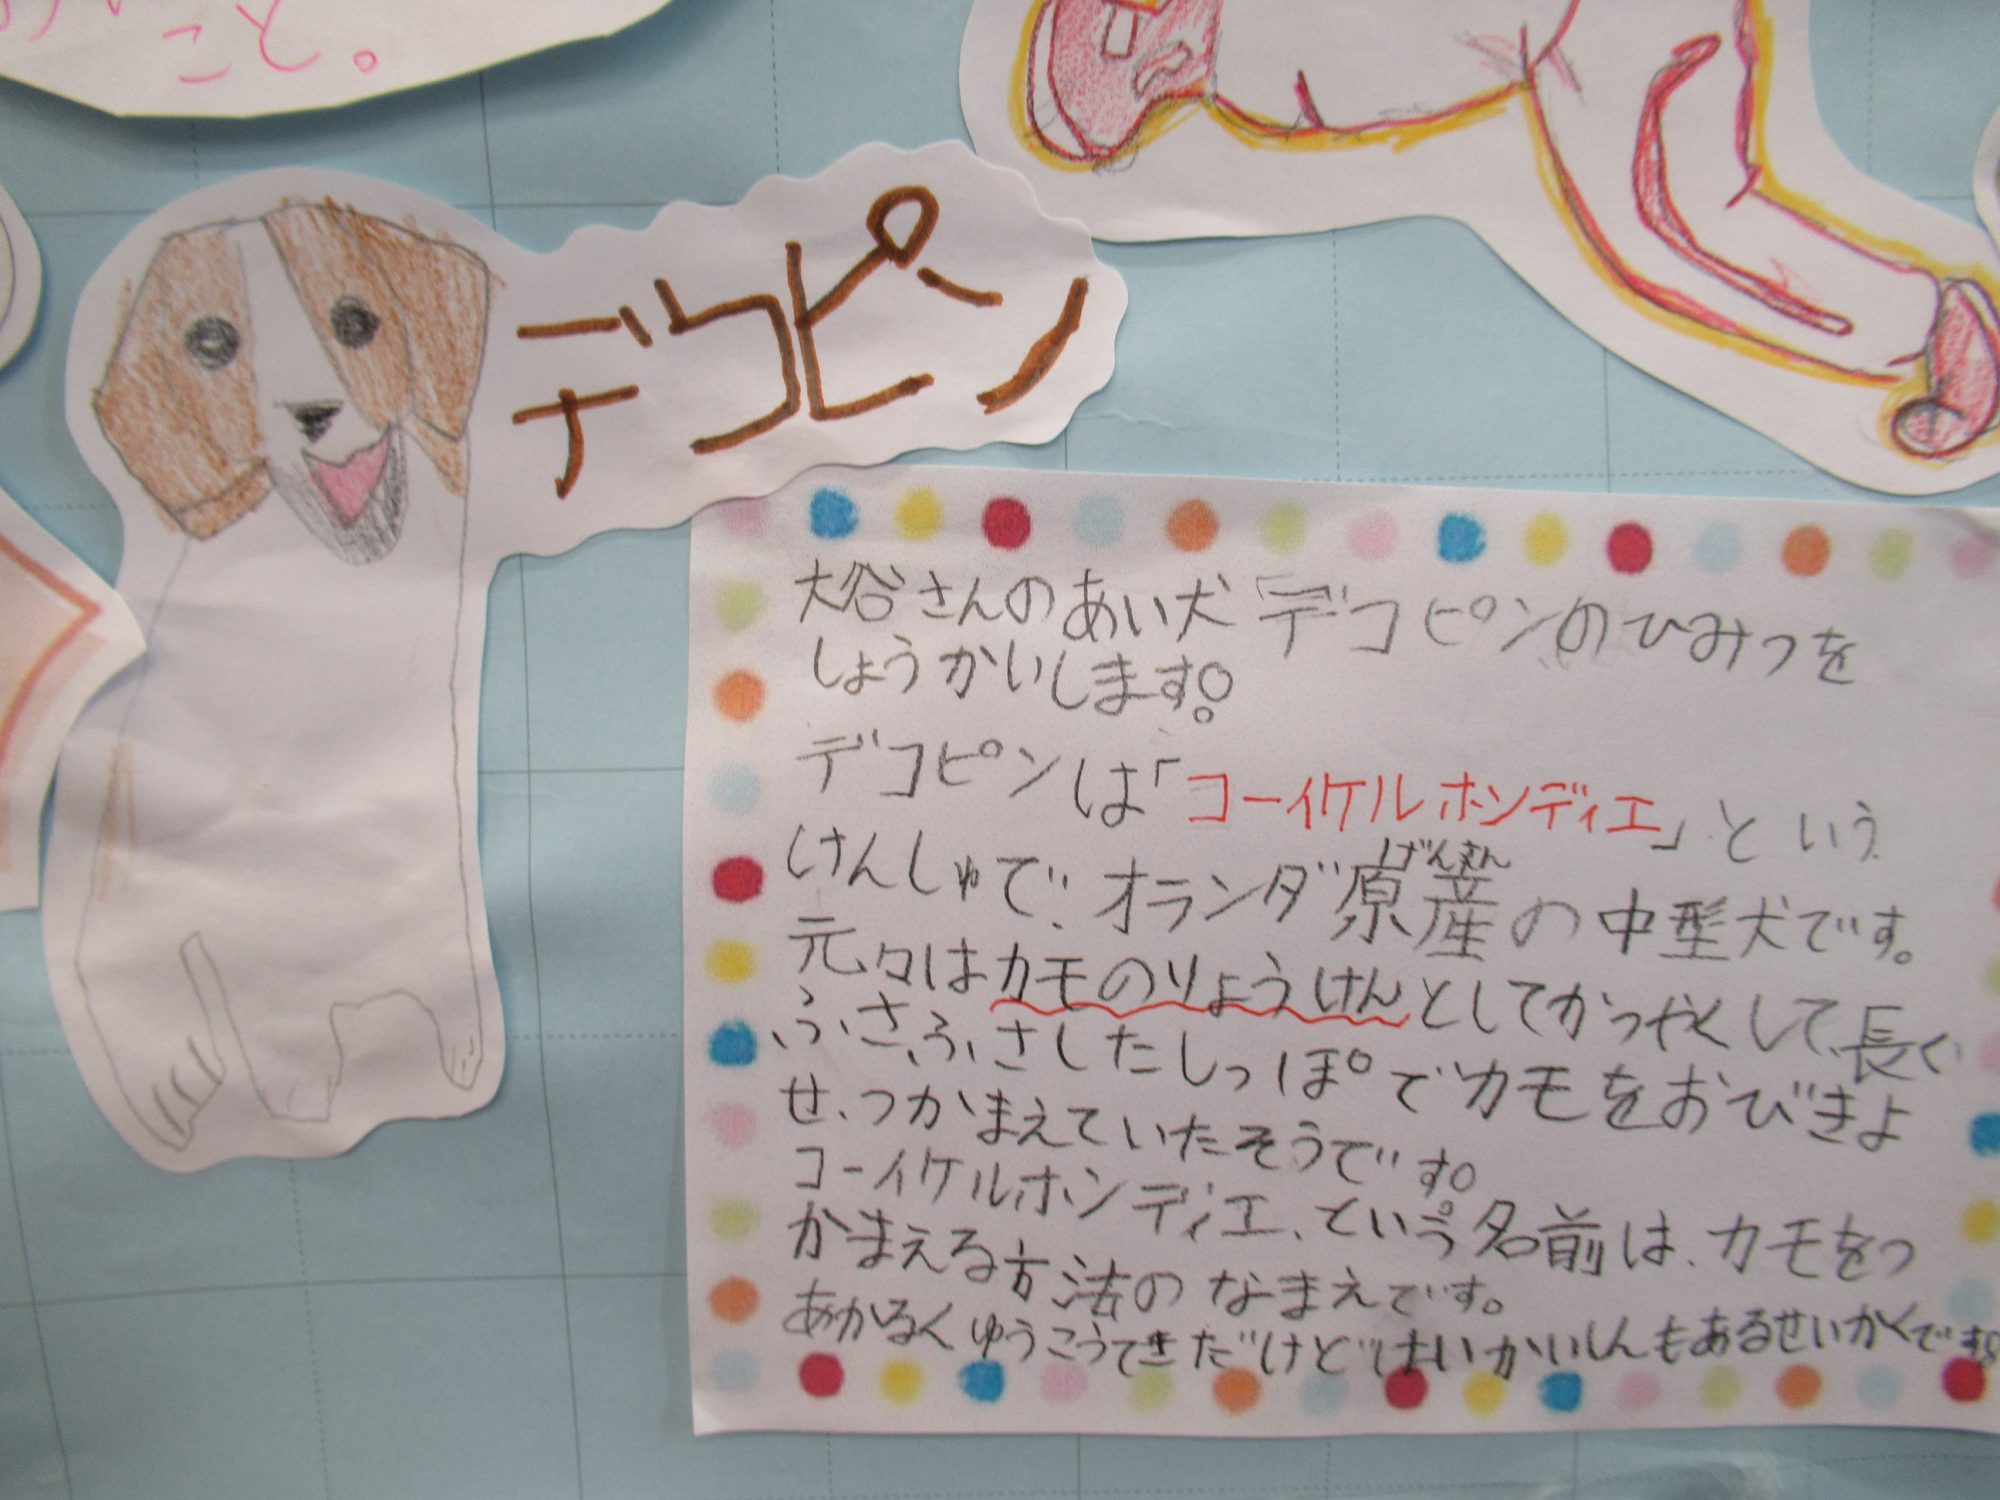 こと。
デコピン
大谷さんのあい犬「デコピンのひみつを
しょうかいします。
デコピンは「コーイケルホンディエ」という
けんしゅで、オランダ原産の中型犬です。
げんさん
元々はカモのりょうけんとしてかつやくして、長く
ふさふさしたしっぽでカモをおびきよ
せ、つかまえていたそうです。
コーイケルホンディエ、という名前は、カモをつ
かまえる方法のなまえです。
あかるくゆうこうてきだけどけいかいしんもあるせいかくです。